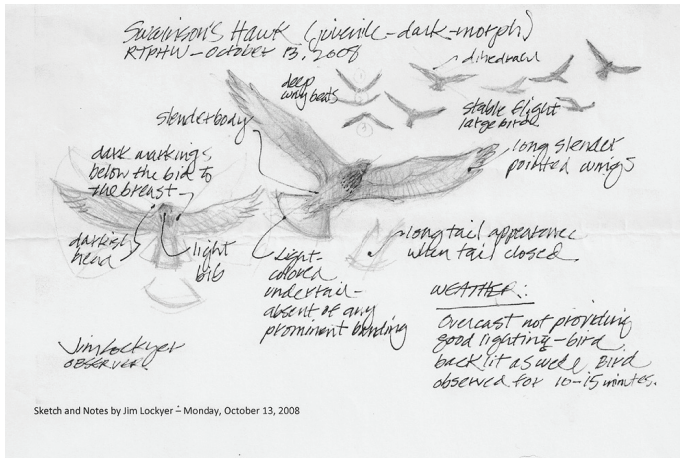 Swainson's Hawk (juvenile-dark-morph)
RTPHW - October 13, 2008
dihedral
deep
wing beats
stable flight
large bird
slender body
long slender
pointed wings
dark markings
below the bib to
the breast
darkish
head
light
bib
light-
colored
undertail-
absent of any
prominent banding
long tail appearance
when tail closed.
WEATHER:
Overcast not providing
good lighting - bird
back lit as well. Bird
observed for 10-15 minutes.
Jim Lockyer
OBSERVER
Sketch and Notes by Jim Lockyer – Monday, October 13, 2008